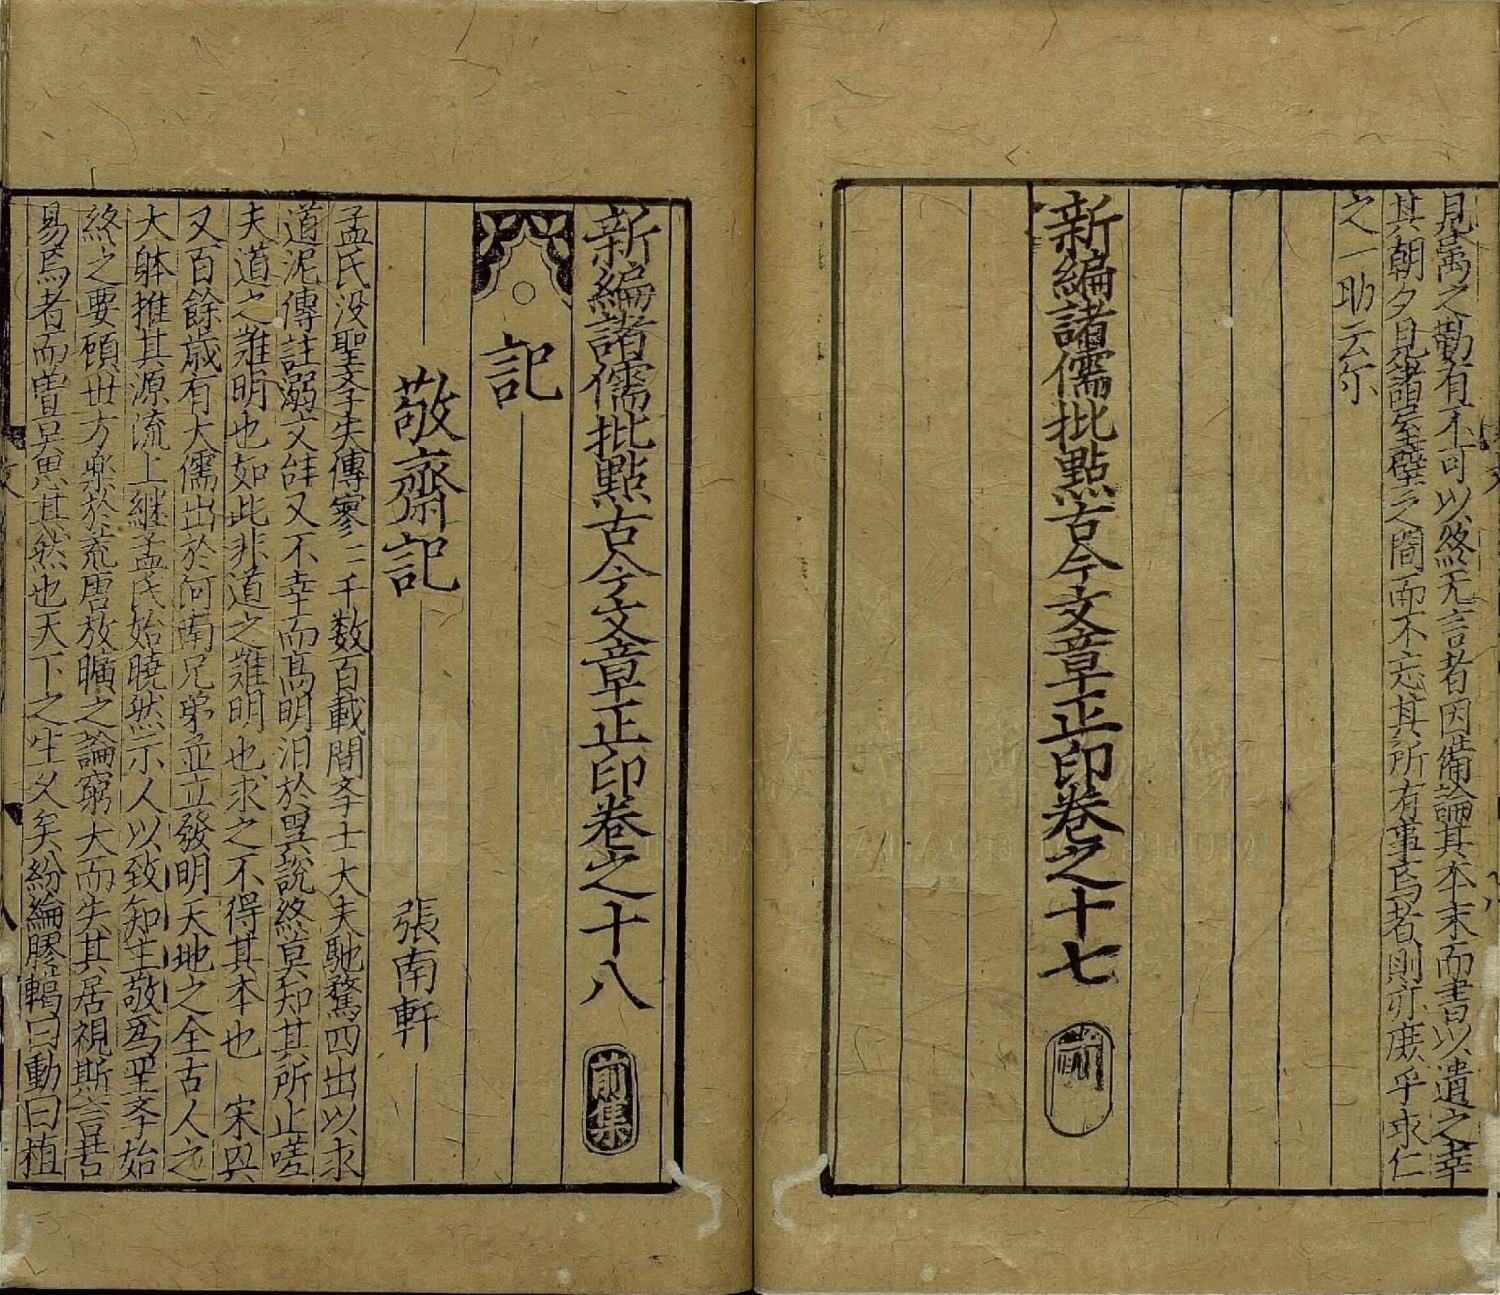 見寓之勤有不可以終无言者因備論其本末而書以遺之幸
其朝夕見諸屋壁之間而不忘其所有事焉者則亦庶乎求仁
之一助云尓
新編諸儒批點古今文章正印卷之十七
新編諸儒批點古今文章正印卷之十八 前集
記
敬齋記 張南軒
孟氏没聖学失傳寥〻千数百載間学士大夫馳騖四出以求
道泥傳註溺文辝又不幸而髙明汨於異説終莫知其所止嗟
夫道之難明也如此非道之難明也求之不得其本也 宋興
又百餘歳有大儒出於何南兄弟並立發明天地之全古人之
大躰推其源流上継孟氏始曉然示人以致知主敬爲聖学始
終之要領世方樂於荒唐放曠之論窮大而失其居視斯言若
易焉者而曽莫思其然也天下之生乆矣紛綸膠轕曰動曰植